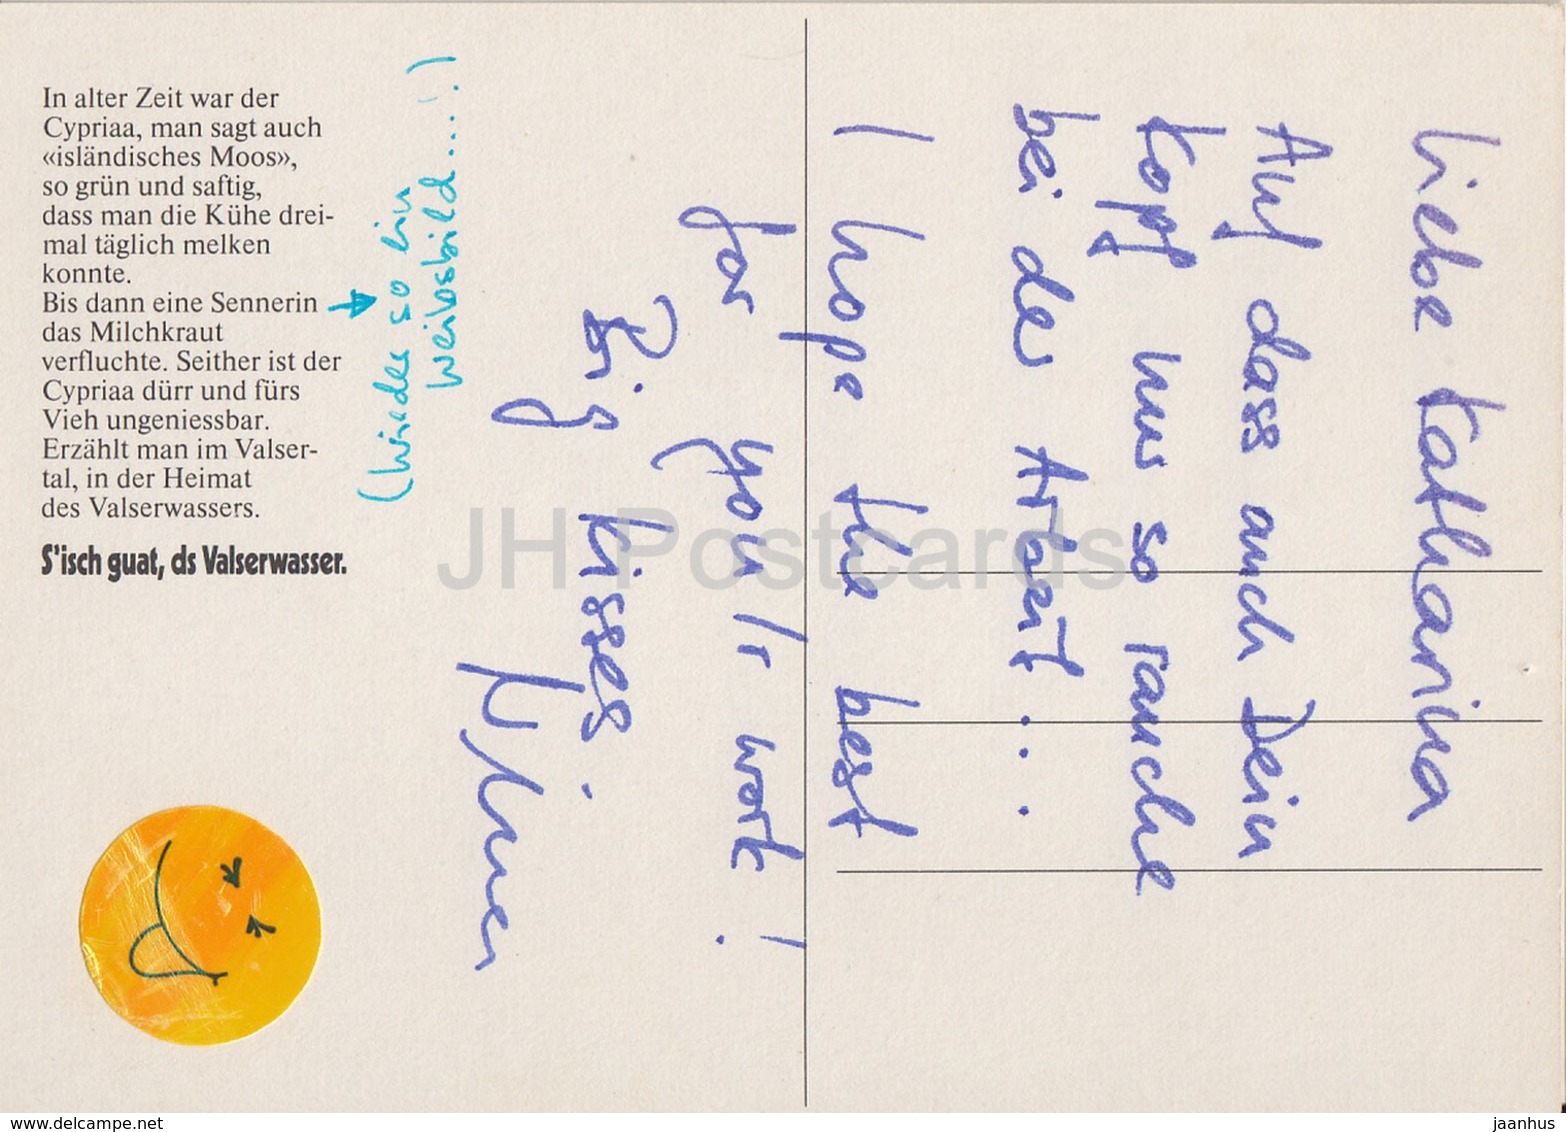 In alter Zeit war der
Cypriaa, man sagt auch
«isländisches Moos»,
so grün und saftig,
dass man die Kühe drei-
mal täglich melken
konnte.
Bis dann eine Sennerin
das Milchkraut
verfluchte. Seither ist der
Cypriaa dürr und fürs
Vieh ungeniessbar.
Erzählt man im Valser-
tal, in der Heimat
des Valserwassers.
S'isch guat, ds Valserwasser.
(wieder so ein
weibsbild....!)
Liebe Katharina
Auf dass auch Dein
Kopf nur so rauche
bei der Arbeit...
I hope the best
for you/r work!
Big kisses.
JH Postcards
www.delcampe.net
jaanhus